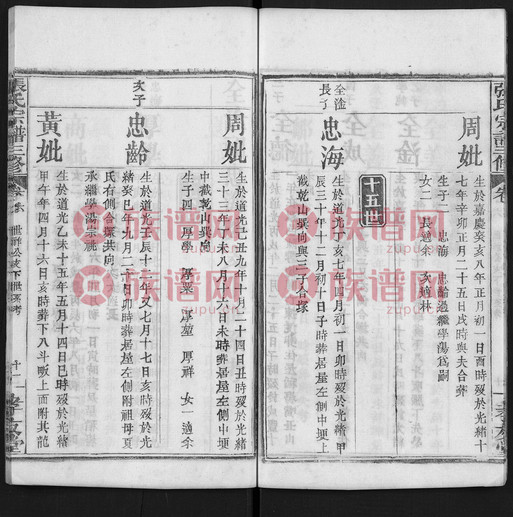 張氏宗譜三修
周妣
生於嘉慶癸亥八年正月初一日酉時歿於光緒十
七年辛卯正月二十五日戌時與夫合葬
生子二 忠海 忠齡過繼學蕩爲嗣
女二 長適余 次適林
十五世
全淦
長子
忠海
生於道光丁亥七年四月初一日卯時歿於光緒甲
辰三十年十二月初十日子時葬居屋左側中埂上
截乾山巽向與三丁合塚
周妣
生於道光己丑九年十月二十四日丑時歿於光緒
三十三年丁未八月二十六日未時葬居屋左側中埂
中截乾山巽向
生子四 厚學 厚
厚堃 厚祥 女一適余
次子
忠齡
生於道光壬辰十二年又七月十七日亥時歿於光
緒癸巳年九月二十日卯時葬居屋左側附祖母夏
氏右側合塚共向
承繼學蕩宗祧
黃妣
生於道光乙未十五年五月十四日巳時歿於光緒
甲午年四月十六日亥時葬下八斗畈上面附其龍
張氏宗譜三修
世祥公支下世系考
十一
孝友堂
孝友堂
族谱网
zupu.cn